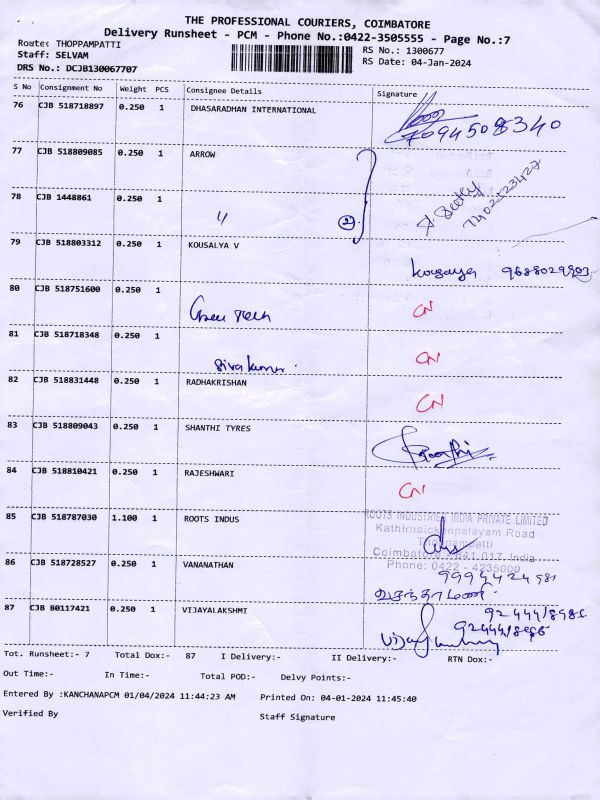 THE PROFESSIONAL COURIERS, COIMBATORE
Delivery Runsheet - PCM - Phone No.:0422-3505555 - Page No.:7
Route: THOPPAMPATTI
RS No.: 1300677
Staff: SELVAM
RS Date: 04-Jan-2024
DRS No.: DCJB130067707
S No Consignment No Weight PCS Consignee Details Signature
76 CJB 518718897 0.250 1 DHASARADHAN INTERNATIONAL
7094508340
77 CJB 518809085 0.250 1 ARROW
78 CJB 1448861 0.250 1
②
79 CJB 518803312 0.250 1 KOUSALYA V
Kousalya 9688029903
80 CJB 518751600 0.250 1
CN
81 CJB 518718348 0.250 1
Sivakumar. CN
82 CJB 518831448 0.250 1 RADHAKRISHAN
CN
83 CJB 518809043 0.250 1 SHANTHI TYRES
84 CJB 518810421 0.250 1 RAJESHWARI
CN
85 CJB 518787030 1.100 1 ROOTS INDUS
ROOTS INDUSTRIES INDIA PRIVATE LIMITED
Kathirnaickenpalayam Road
Thoppampatti
Coimbatore - 641 017, India
Phone: 0422 - 4235000
86 CJB 518728527 0.250 1 VANANATHAN
9994424981
வசந்தாமணி
87 CJB 80117421 0.250 1 VIJAYALAKSHMI
Tot. Runsheet:- 7 Total Dox:- 87 I Delivery:- II Delivery:- RTN Dox:-
Out Time:- In Time:- Total POD:- Delvy Points:-
Entered By :KANCHANAPCM 01/04/2024 11:44:23 AM Printed On: 04-01-2024 11:45:40
Verified By Staff Signature